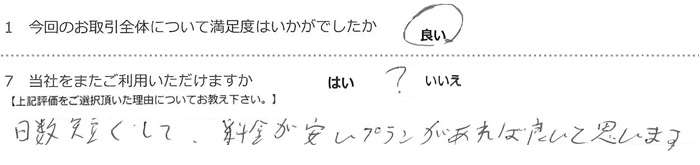 1 今回のお取引全体について満足度はいかがでしたか 良い
7 当社をまたご利用いただけますか はい ? いいえ
【上記評価をご選択頂いた理由についてお教え下さい。】
日数短くして、料金が安いプランがあれば良いと思います